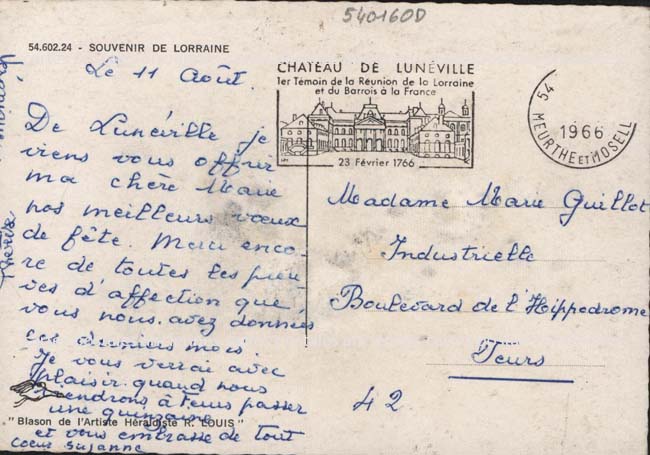 540160D
54.602.24 - SOUVENIR DE LORRAINE
Le 11 Août.
De Lunéville je
viens vous offrir
ma chère Marie
nos meilleurs vœux
de fête. Merci enco-
re de toutes les preu
ves d'affection que
vous nous avez données
ces derniers mois.
Je vous verrai avec
plaisir quand nous
viendrons à Feurs passer
une quinzaine
et vous embrasse de tout
cœur Suzanne
"Blason de l'Artiste Héraldiste R. LOUIS"
CHATEAU DE LUNÉVILLE
1er Témoin de la Réunion de la Lorraine
et du Barrois à la France
23 Février 1766
54
1966
MEURTHE ET MOSELL
Madame Marie Guillot
Industrielle
Boulevard de l'Hippodrome
Feurs
42